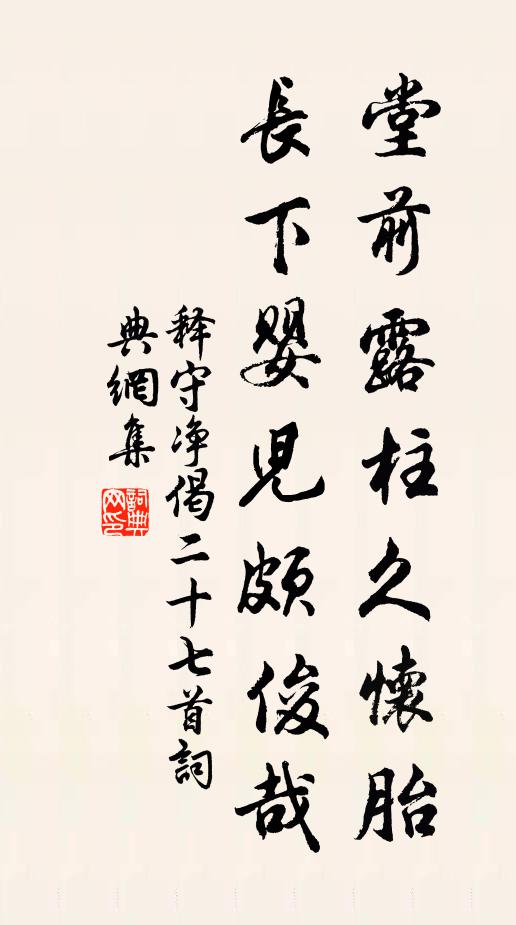 堂前露柱久懷胎
長下嬰児頗俊哉
释守净偈二十七首詞
典網集
詞典网印